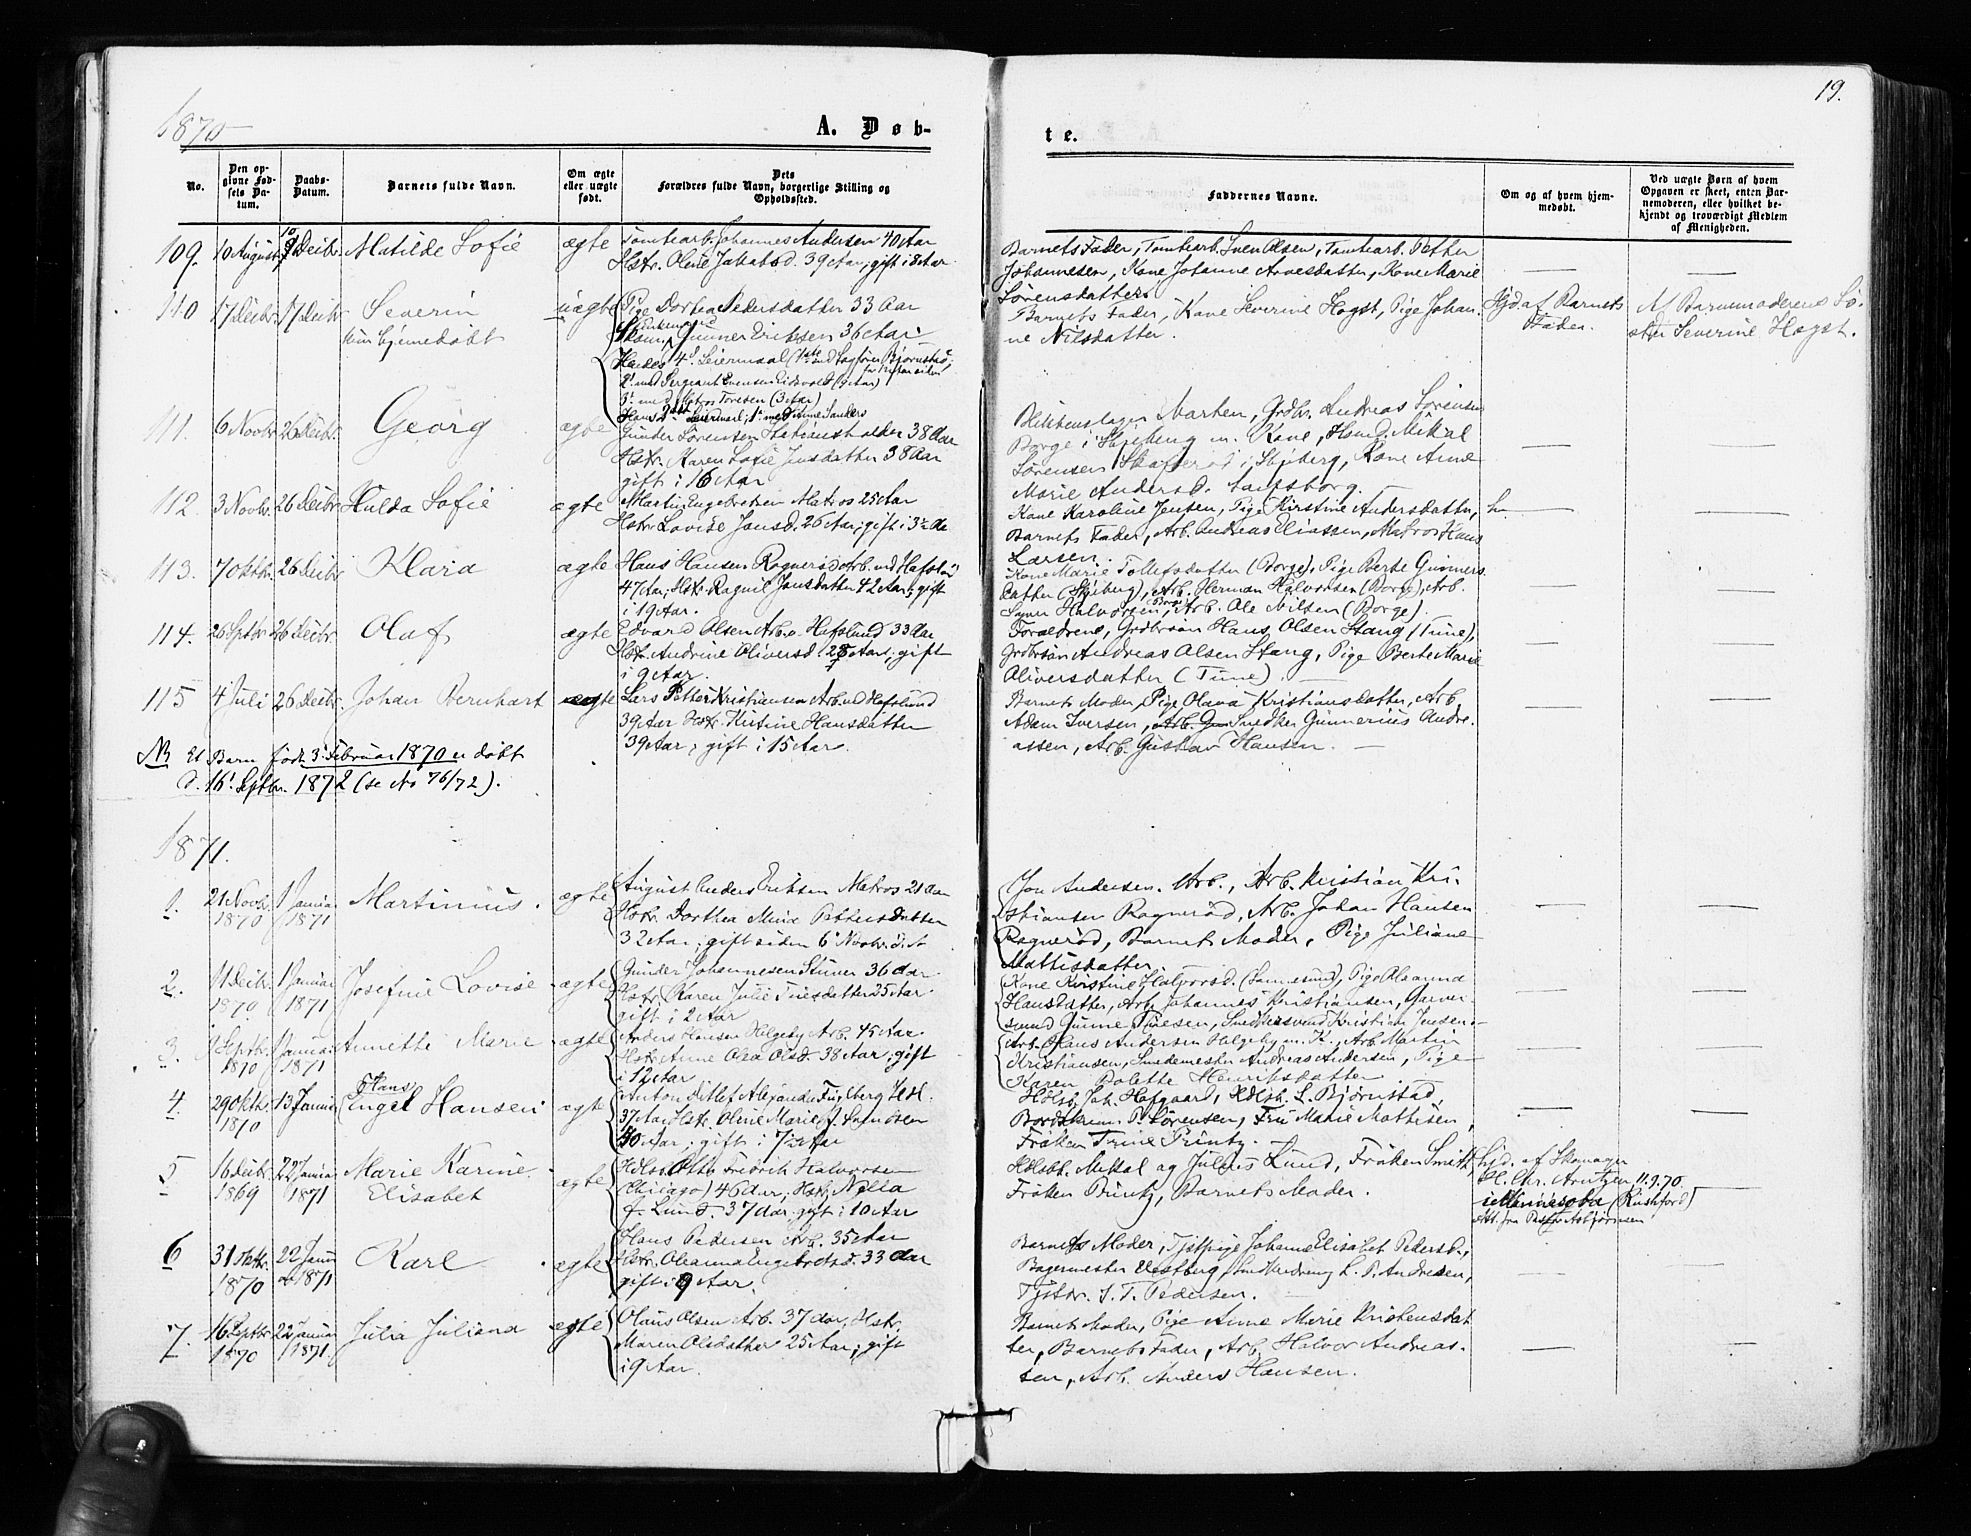 19.
1870
A. Døb-
te.
No.
Den op-
givne Fød-
sels Da-
tum.
Daabs-
Datum.
Barnets fulde Navn.
Om ægte
eller uægte
født.
Dets
Forældres fulde Navn, borgerlige Stilling og
Opholdssted.
Faddernes Navne.
Om og af hvem hjem-
medøbt.
Ved uægte Børn af hvem
Opgaven er skeet, enten Bar-
nemoderen, eller hvilket be-
kjendt og troværdigt Medlem
af Menigheden.
109. 10 August Decbr. Matilde Sofie ægte Tomtearb. Johannes Andersen 40 Aar
Hstr. Oline Jakobsd. 39 Aar; gift i 8 Aar
Barnets Fader, Tomtearb. Sven Olsen, Tomtearb. Petter
Johannesen, Kone Johanne Arnesdatter, Kone Marie
Sørensdatter
110 17 Decbr. 17 Decbr. Severin uægte Pige Dorthea Pedersdatter 33 Aar
kun hjemmedøbt
Gunner Eriksen 36 Aar
Hendes 4d Leiermaal
2' med Sergeant Evensen Eidsvold (9 Aar)
3' med Matros Toresen (3 Aar)
Hans 2det Leiermaal; 1' med Anne
Barnets Fader, Kone Severine Hogst, Pige Johan-
ne Nilsdatter.
Hjd af Barnets
Fader.
Af Barnemoderens Sø-
ster Severine Hogst.
111. 6 Novbr 26 Decbr. Georg ægte Gunder Sørensen 38 Aar
Hstr. Karen Sofie Jensdatter 38 Aar
gift i 16 Aar
Blikkenslager Marken, Grdbr. Andreas Sørensen
Borge i Skjeberg m. Kone, Mikal
Sørensen i Skjeberg, Kone Anne
Marie Andersd. Sarpsborg.
112. 3 Novbr. 26 Decbr. Hulda Sofie ægte Martin Engebretsen Matros 25 Aar
Hstr. Lovise Jansd. 26 Aar; gift i 3½ Aar
Kone Karoline Jensen, Pige Kirstine Andersdatter,
Barnets Fader, Arb. Andreas Eliassen, Matros Hans
Larsen.
113. 7 Oktbr. 26 Decbr Klara ægte Hans Hansen Rognerød Arb. ved Hafslund
47 Aar; Hstr. Ragnil Jansdatter 42 Aar; gift
i 19 Aar.
Kone Marie Tollefsdatter (Borge), Pige Berte Gunners-
datter (Skjeberg), Arb. Herman Halvorsen (Borge), Arb.
Halvorsen Borge, Arb. Ole Nilsen (Borge).
114. 26 Septbr 26 Decbr. Olaf ægte Edvard Olsen Arb. v. Hafslund 33 Aar
Hstr. Andrine Oliversd. 28 Aar; gift
i 9 Aar.
Forældrene, Grdbrsøn Hans Olsen Stang (Tune),
Grdbrsøn Andreas Olsen Stang, Pige Berte Marie
Oliversdatter (Tune).
115 4 Juli 26 Decbr. Johan Bernhart ægte Lars Petter Kristiansen Arb. ved Hafslund
39 Aar Hstr. Kirstine Hansdatter
39 Aar; gift i 15 Aar.
Barnets Moder, Pige Olava Kristiansdatter, Arb
Adam Iversen, Arb. Gu Snedker Gunnerius Andre-
assen, Arb. Gustav Hansen.
NB Et Barn født 3. Februar 1870 er døbt
d. 16' Septbr. 1872 (se No 76/72).
1871.
1. 21 Novbr. 1870 1 Januar 1871 Martinius. ægte August Anders Eriksen Matros 21 Aar
Hstr. Dorthea Mine Pettersdatter
32 Aar; gift siden 6' Novbr. d. A
Jon Andersen Arb., Arb. Kristian Kri-
stiansen Rognerød, Arb. Johan Hansen
Rognerød, Barnets Moder, Pige Juliane
Mattisdatter
2. 11 Decbr. 1870 1 Januar 1871 Josefine Lovise ægte Gunder Johannesen Stuver 36 Aar
Hstr. Karen Julie 25 Aar.
gift i 2 Aar
Kone Kirstine Halvorsd. (Sannesund), Pige Oleanna
Hansdatter, Arb. Johannes Kristiansen, Garver-
svend Gunne Tinesen, Snedkersvend Kristian Jensen.
3. Septbr. 1870 1 Januar 1871 Annette Marie ægte Anders Hansen Helgeby Arb. 45 Aar.
Hstr. Anne Olea Olsd. 38 Aar; gift
i 12 Aar
Arb. Hans Andersen Helgeby m. K., Arb. Martin
Kristiansen, Smedemester Andreas Andersen, Pige
Karen Bolette Henriksdatter
4. 29 Oktbr. 1870 13 Januar Hans Engel Hansen ægte Anton Ditlef Alexander Fuglberg
37 Aar Hstr. Oline Marie f. Svendsen
40 Aar; gift i 7½ Aar
Hdlsb. Joh. Hafgaard, Hdlsb. L. Bjørnstad,
P. Sørensen, Fru Marie Mathisen,
Frøken Trine Printz.
5 16 Decbr. 1869 22 Januar 1871 Marie Karine
Elisabet ægte Otto Fredrik Halvorsen
(Chicago) 46 Aar; Hstr. Nella
f. Lund. 37 Aar gift i 10 Aar
Hdlsb. Mikal og Julius Lund, Frøken Smith,
Frøken Printz, Barnets Moder.
hjd. af Skomager
H. Chr. Arntzen 11.9.70.
i Minnesota (Rushford)
Att. fra Pastor Asbjørnsen
6 31 Oktbr. 1870 22 Januar 1871 Karl ægte Hans Pedersen Arb. 35 Aar
Hstr. Oleanna Engebretsd. 33 Aar
gift i 9 Aar.
Barnets Moder, Tjstpige Johanne Elisabet Pedersd.,
Bagermester Westberg, L. P. Andresen,
Tjstdr. S. T. Pedersen.
7. 16 Septbr 1870 22 Januar 1871. Julia Juliana ægte Olaus Olsen Arb. 37 Aar, Hstr.
Maren Olsdatter 25 Aar; gift
i 9 Aar.
Barnets Moder, Pige Anne Marie Kristensdat-
ter, Barnets Fader, Arb. Halvor Andreas-
sen, Arb. Anders Hansen.